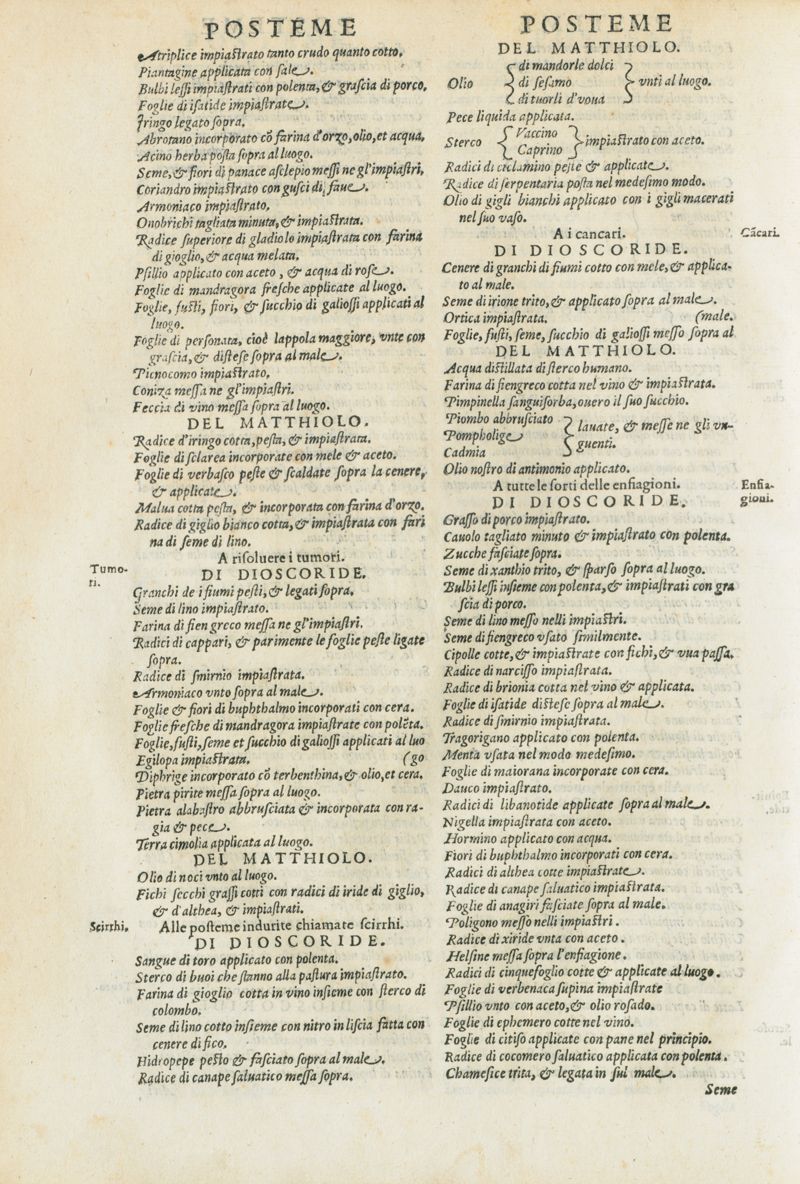 POSTEME
Atriplice impiastrato tanto crudo quanto cotto.
Piantagine applicata con sale.
Bulbi lessi impiastrati con polenta, & grascia di porco.
Foglie di isatide impiastrate.
Iringo legato sopra.
Abrotano incorporato cō farina d'orzo, olio, et acqua.
Acino herba posta sopra al luogo.
Seme, & fiori di panace asclepio messi ne gl'impiastri,
Coriandro impiastrato con gusci di faue.
Armoniaco impiastrato.
Onobrichi tagliata minuta, & impiastrata.
Radice superiore di gladiolo impiastrata con farina
di gioglio, & acqua melata.
Psillio applicato con aceto, & acqua di rose.
Foglie di mandragora fresche applicate al luogo.
Foglie, fusti, fiori, & succhio di galiossi applicati al
luogo.
Foglie di personata, cioè lappola maggiore, vnte con
grascia, & distese sopra al male.
Picnocomo impiastrato,
Coniza messa ne gl'impiastri.
Feccia di vino messa sopra al luogo.
DEL MATTHIOLO.
Radice d'iringo cotta, pesta, & impiastrata.
Foglie di sclarea incorporate con mele & aceto.
Foglie di verbasco peste & scaldate sopra la cenere,
& applicate.
Malua cotta pesta, & incorporata con farina d'orzo.
Radice di giglio bianco cotta, & impiastrata con fari
na di seme di lino.
A risoluere i tumori.
Tumo-
ri.
DI DIOSCORIDE.
Granchi de i fiumi pesti, & legati sopra.
Seme di lino impiastrato.
Farina di fien greco messa ne gl'impiastri.
Radici di cappari, & parimente le foglie peste ligate
sopra.
Radice di smirnio impiastrata.
Armoniaco vnto sopra al male.
Foglie & fiori di buphthalmo incorporati con cera.
Foglie fresche di mandragora impiastrate con polēta.
Foglie, fusti, seme et succhio di galiossi applicati al luo
Egilopa impiastrata. (go
Diphrige incorporato cō terbenthina, & olio, et cera.
Pietra pirite messa sopra al luogo.
Pietra alabastro abbrusciata & incorporata con ra-
gia & pece.
Terra cimolia applicata al luogo.
DEL MATTHIOLO.
Olio di noci vnto al luogo.
Fichi secchi grassi cotti con radici di iride di giglio,
& d'althea, & impiastrati.
Scirrhi.
Alle posteme indurite chiamate scirrhi.
DI DIOSCORIDE.
Sangue di toro applicato con polenta.
Sterco di buoi che stanno alla pastura impiastrato.
Farina di gioglio cotta in vino insieme con sterco di
colombo.
Seme di lino cotto insieme con nitro in liscia fatta con
cenere di fico.
Hidropepe pesto & fasciato sopra al male.
Radice di canape saluatico messa sopra.
POSTEME
DEL MATTHIOLO.
di mandorle dolci
Olio di sesamo vnti al luogo.
di tuorli d'voua
Pece liquida applicata.
Vaccino
Sterco impiastrato con aceto.
Caprino
Radici di ciclamino peste & applicate.
Radice di serpentaria posta nel medesimo modo.
Olio di gigli bianchi applicato con i gigli macerati
nel suo vaso.
A i cancari.
Cācari.
DI DIOSCORIDE.
Cenere di granchi di fiumi cotto con mele, & applica-
to al male.
Seme di irione trito, & applicato sopra al male.
Ortica impiastrata. (male.
Foglie, fusti, seme, succhio di galiossi messo sopra al
DEL MATTHIOLO.
Acqua distillata di sterco humano.
Farina di fiengreco cotta nel vino & impiastrata.
Pimpinella sanguisorba, ouero il suo succhio.
Piombo abbrusciato
Pompholige lauate, & messe ne gli vn-
Cadmia guenti.
Olio nostro di antimonio applicato.
A tutte le sorti delle enfiagioni.
Enfia-
gioni.
DI DIOSCORIDE.
Grasso di porco impiastrato.
Cauolo tagliato minuto & impiastrato con polenta.
Zucche fasciate sopra.
Seme di xanthio trito, & sparso sopra al luogo.
Bulbi lessi insieme con polenta, & impiastrati con gra
scia di porco.
Seme di lino messo nelli impiastri.
Seme di fiengreco vsato similmente.
Cipolle cotte, & impiastrate con fichi, & vua passa.
Radice di narcisso impiastrata.
Radice di brionia cotta nel vino & applicata.
Foglie di isatide distese sopra al male.
Radice di smirnio impiastrata.
Tragorigano applicato con polenta.
Menta vsata nel modo medesimo.
Foglie di maiorana incorporate con cera.
Dauco impiastrato.
Radici di libanotide applicate sopra al male.
Nigella impiastrata con aceto.
Hormino applicato con acqua.
Fiori di buphthalmo incorporati con cera.
Radici di althea cotte impiastrate.
Radice di canape saluatico impiastrata.
Foglie di anagiri fasciate sopra al male.
Poligono messo nelli impiastri.
Radice di xiride vnta con aceto.
Helsine messa sopra l'enfiagione.
Radici di cinquefoglio cotte & applicate al luogo.
Foglie di verbenaca supina impiastrate
Psillio vnto con aceto, & olio rosado.
Foglie di ephemero cotte nel vino.
Foglie di citiso applicate con pane nel principio.
Radice di cocomero saluatico applicata con polenta.
Chamesice trita, & legata in sul male.
Seme